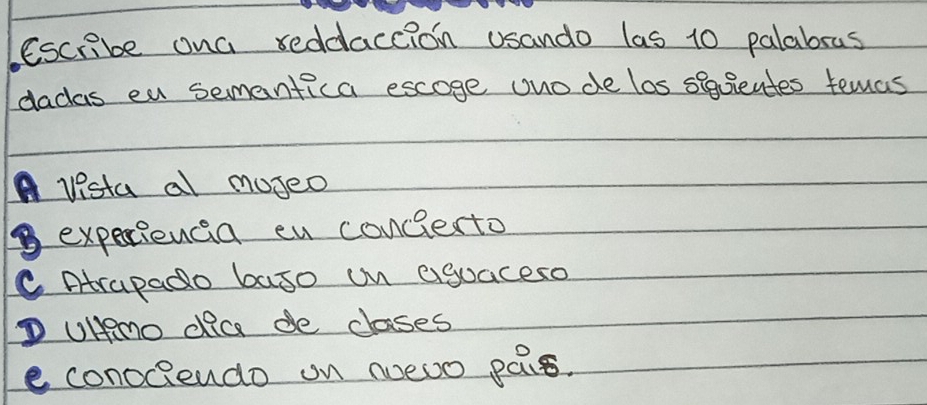 .Escribe una reddacción usando las 10 palabras
dadas en semantica escoge uno de los siguientes temas
A Vista al museo
B experiencia en concierto
C Atrapado bajo un aguacero
D Ultimo dica de clases
e conociendo un nuevo país.